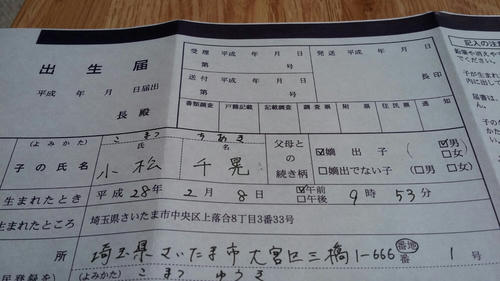 記入の注
鉛筆や消えや
でください。
子が生まれ
内に出して
届書は、
子の
かた
出生届
平成 年 月 日届出
長 殿
受理 平成 年 月 日
第 号
送付 平成 年 月 日
第 号
発送 平成 年 月 日
長印
書類調査 戸籍記載 記載調査 調査票 附票 住民票 通知
(よみかた) こまつ ちあき
氏 名
子の氏名 小松 千晃
父母との続き柄
☑嫡出子
□嫡出でない子
☑男
□女
□男
□女
生まれたとき 平成28年 2月8日 ☑午前 □午後 9時53分
生まれたところ 埼玉県さいたま市中央区上落合8丁目3番33号
所 埼玉県さいたま市大宮区三橋1-666 番地 番 1号
民登録を
(よみかた) こまつ ゆうき